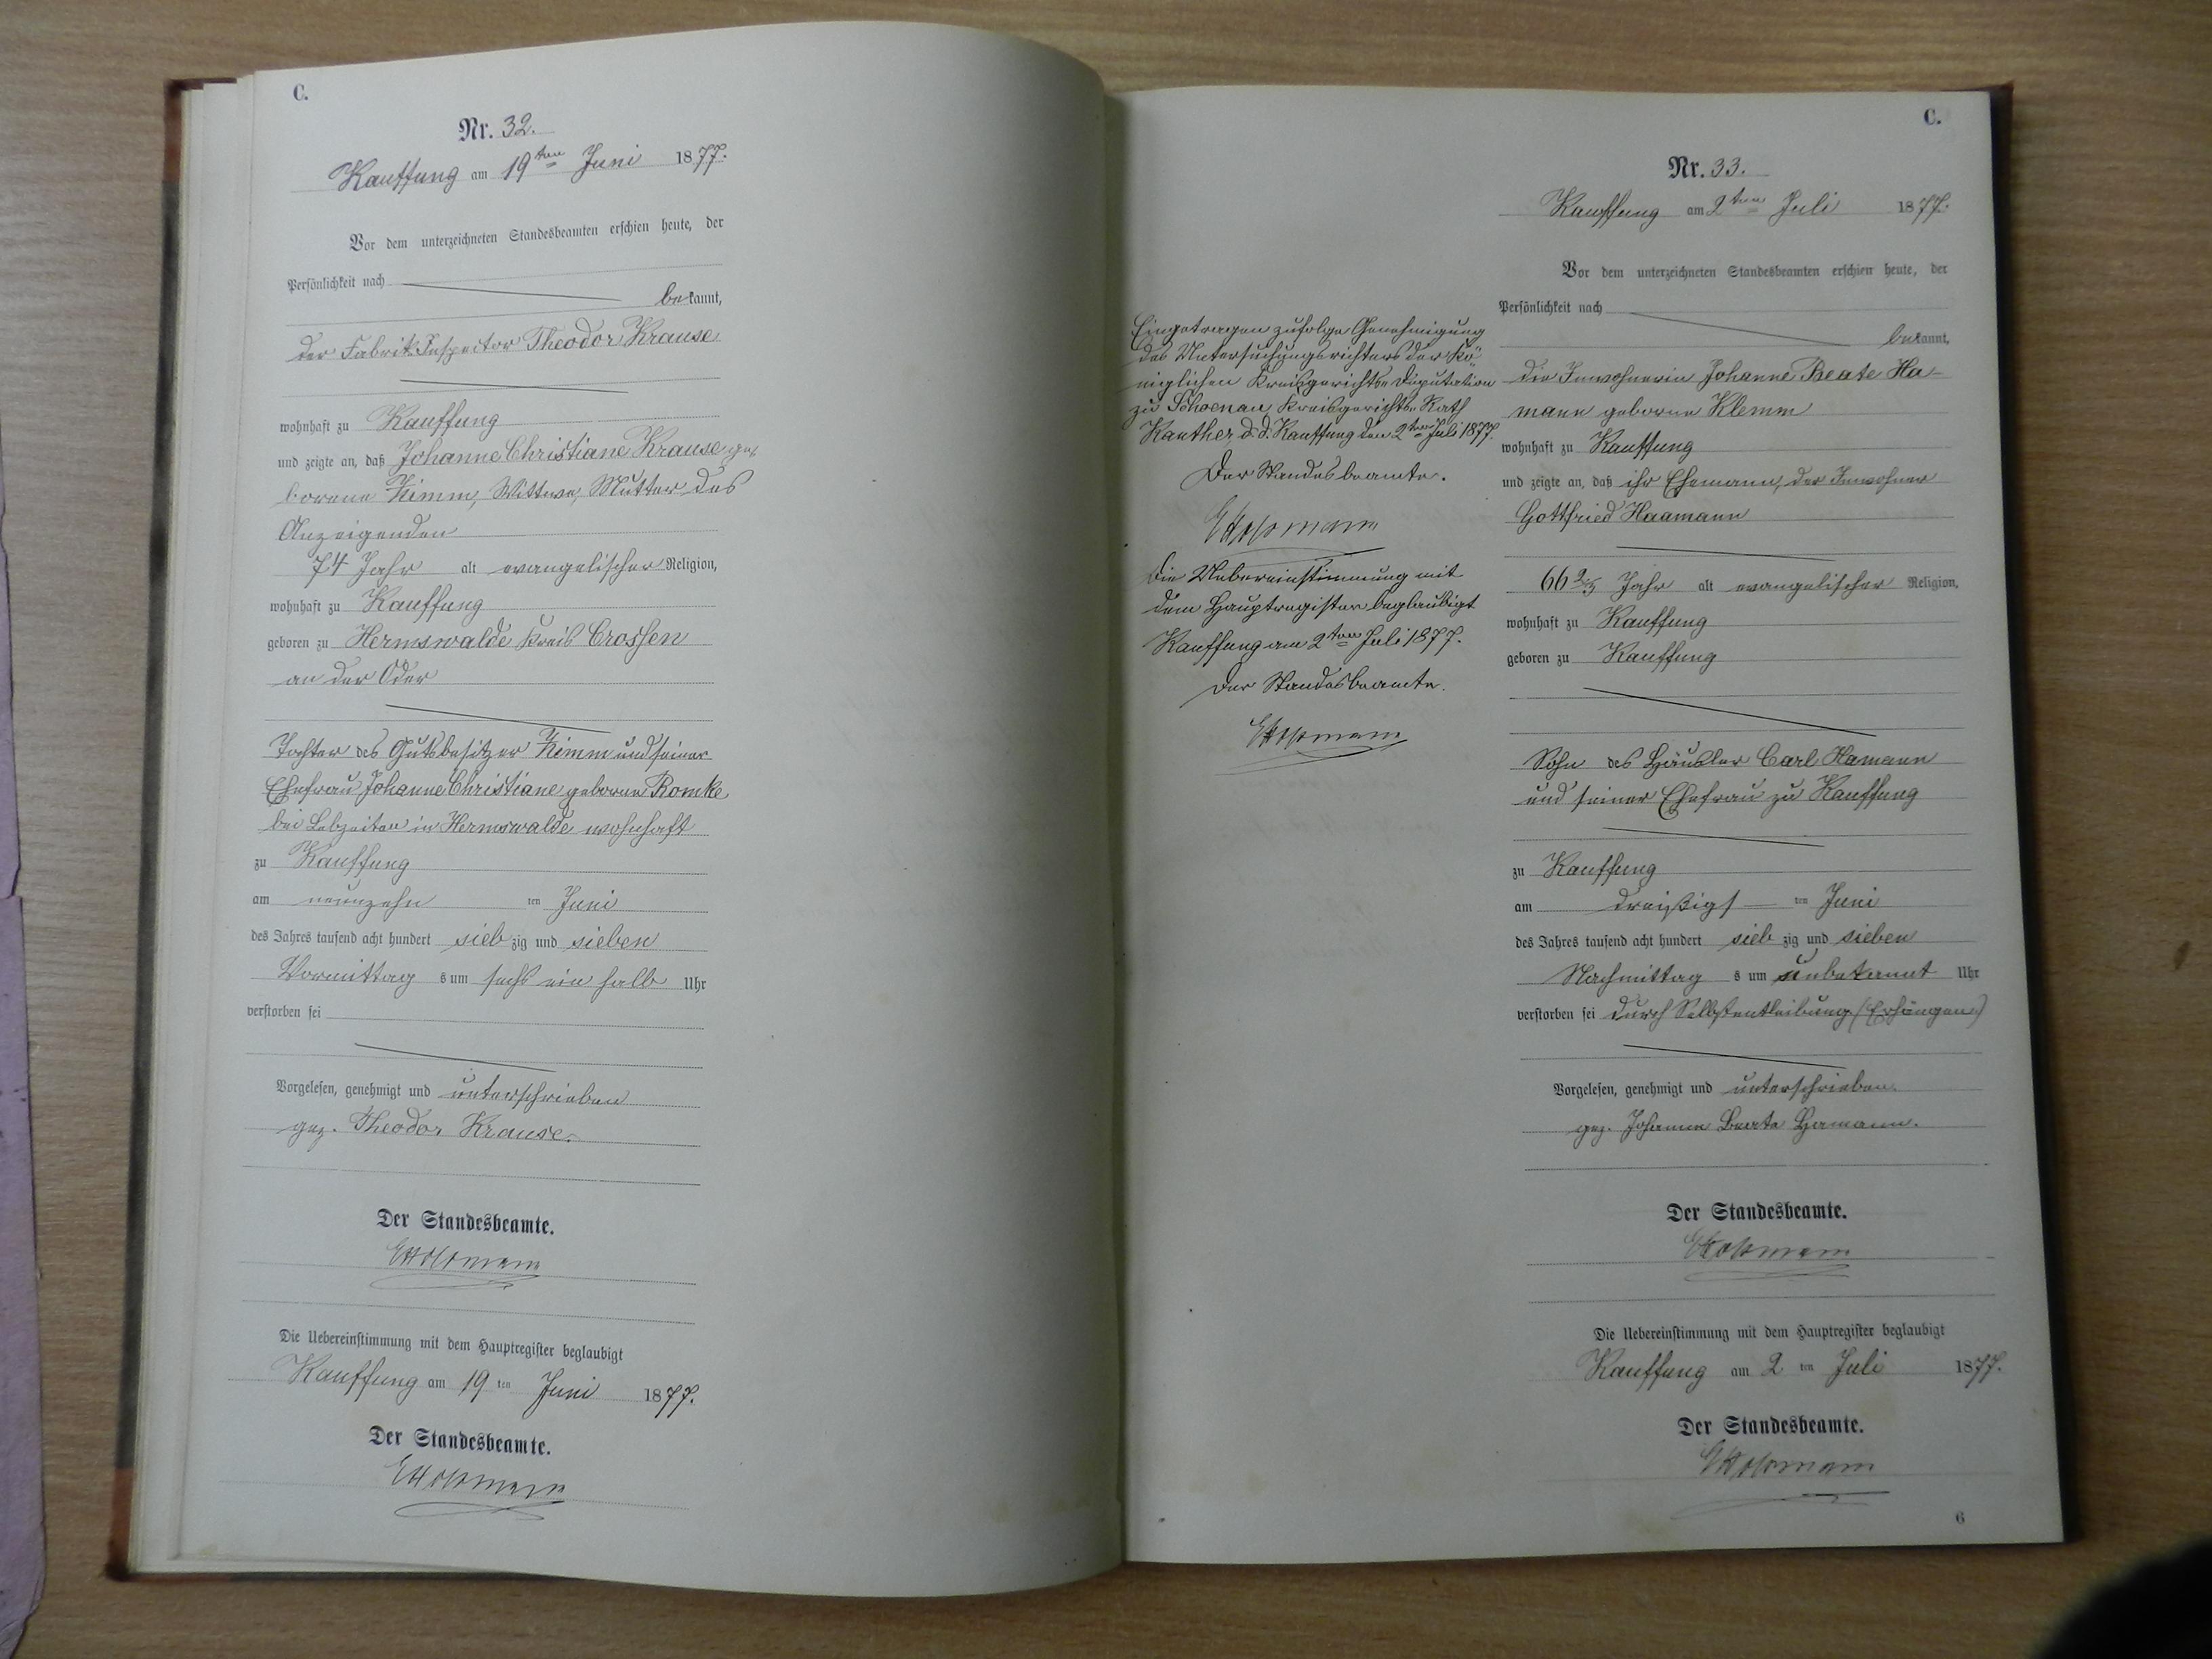 C.
Nr. 32.
Kauffung am 19ten Juni 1877.
Vor dem unterzeichneten Standesbeamten erschien heute, der
Persönlichkeit nach
bekannt,
der Fabrik Inspector Theodor Krause
wohnhaft zu Kauffung
und zeigte an, daß Johanne Christiane Krause ge-
borene Kimm, Wittwe, Mutter des
Anzeigenden
74 Jahr alt evangelischer Religion,
wohnhaft zu Kauffung
geboren zu Hermswalde Kreis Crossen
an der Oder
Tochter des Gutsbesitzer Kimm und seiner
Ehefrau Johanne Christiane geborne Romke
bei Lebzeiten in Hermswalde wohnhaft
zu Kauffung
am neunzehn ten Juni
des Jahres tausend acht hundert siebzig und sieben
Vormittags um sechs ein halb Uhr
verstorben sei
Vorgelesen, genehmigt und unterschrieben
gez. Theodor Krause.
Der Standesbeamte.
Die Uebereinstimmung mit dem Hauptregister beglaubigt
Kauffung am 19 ten Juni 1877.
Der Standesbeamte.
Eingetragen zufolge Genehmigung
des Untersuchungsrichters der Kö-
niglichen Kreisgerichts-Deputation
zu Schoenau, Kreisgerichts-Rath
Kanther d. d. Kauffung den 2ten Juli 1877.
Der Standesbeamte.
Die Uebereinstimmung mit
dem Hauptregister beglaubigt
Kauffung am 2ten Juli 1877.
Der Standesbeamte.
C.
Nr. 33.
Kauffung am 2ten Juli 1877.
Vor dem unterzeichneten Standesbeamten erschien heute, der
Persönlichkeit nach
bekannt,
die Inwohnerin Johanne Beate Ha-
mann geborne Klemm
wohnhaft zu Kauffung
und zeigte an, daß ihr Ehemann, der Inwohner
Gottfried Haamann
66 2/3 Jahr alt evangelischer Religion,
wohnhaft zu Kauffung
geboren zu Kauffung
Sohn des Häusler Carl Hamann
und seiner Ehefrau zu Kauffung
zu Kauffung
am dreißigs ten Juni
des Jahres tausend acht hundert siebzig und sieben
Nachmittags um unbekannt Uhr
verstorben sei durch Selbstentleibung (Erhängen)
Vorgelesen, genehmigt und unterschrieben.
gez. Johanne Beate Hamann.
Der Standesbeamte.
Die Uebereinstimmung mit dem Hauptregister beglaubigt
Kauffung am 2 ten Juli 1877.
Der Standesbeamte.
6